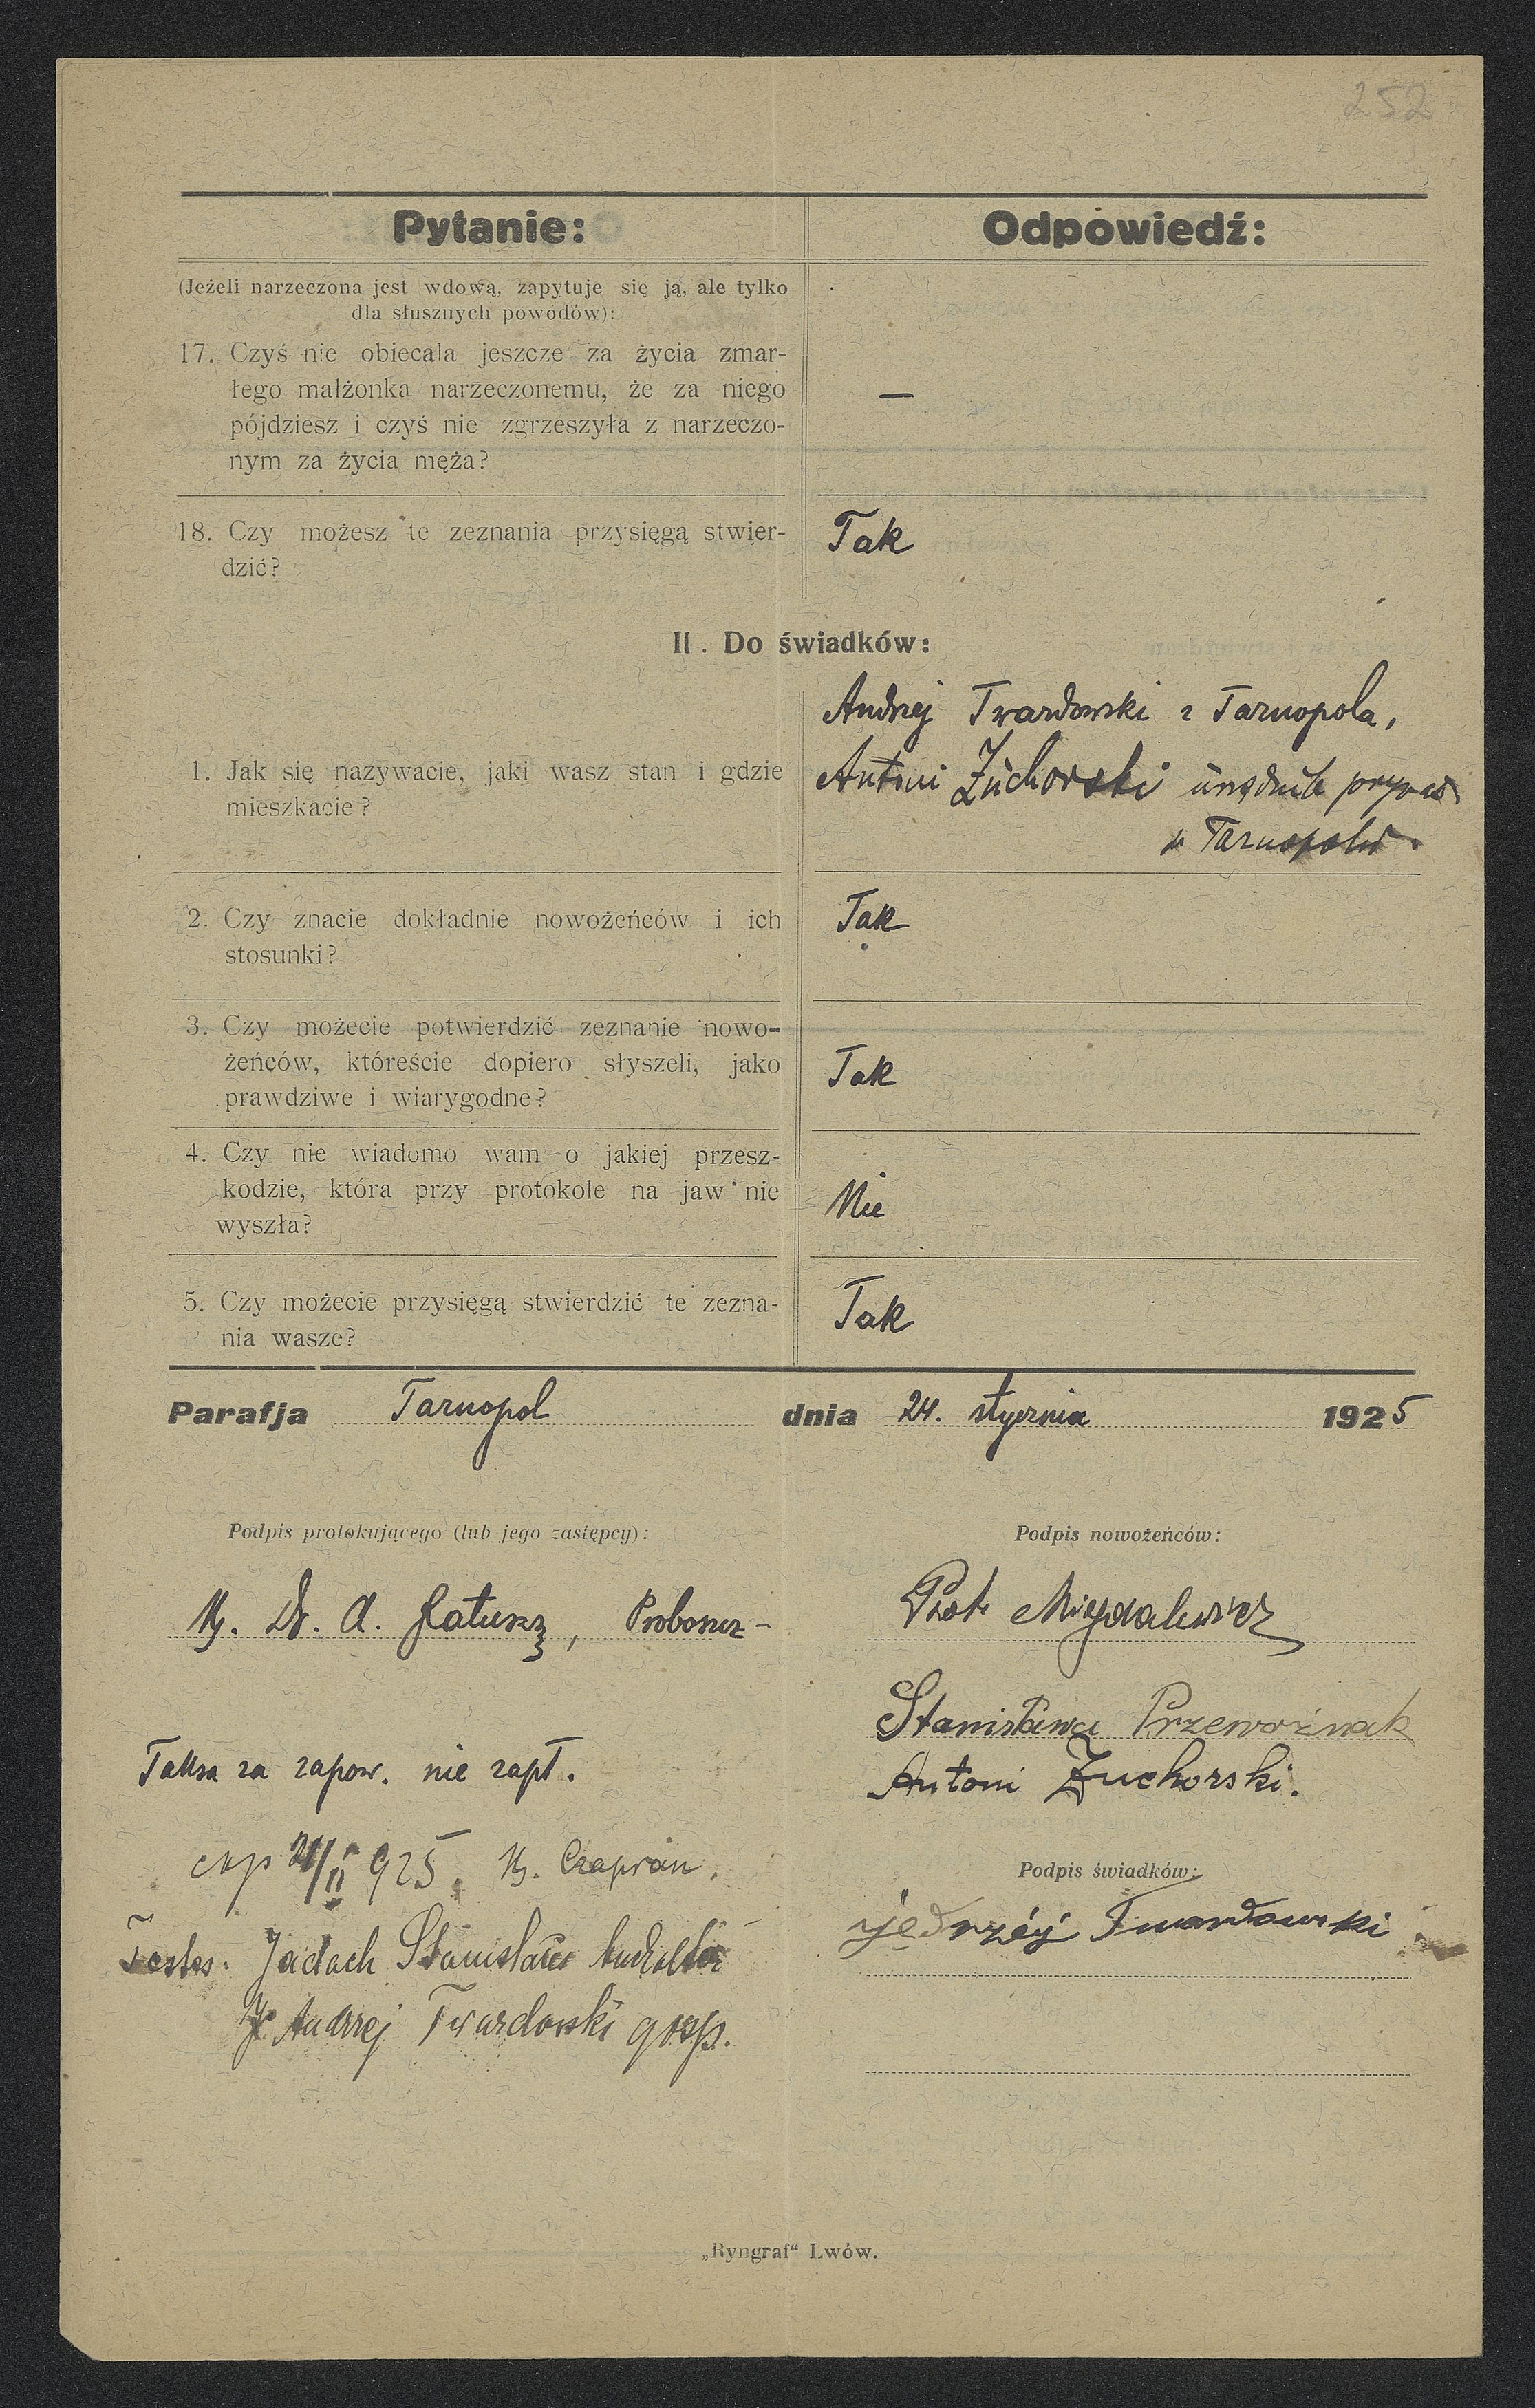 252
Pytanie:
Odpowiedź:
(Jeżeli narzeczona jest wdową, zapytuje się ją, ale tylko
dla słusznych powodów):
17. Czyś nie obiecala jeszcze za życia zmar-
łego małżonka narzeczonemu, że za niego
pójdziesz i czyś nie zgrzeszyła z narzeczo-
nym za życia męża?
—
18. Czy możesz te zeznania przysięgą stwier-
dzić?
Tak
II. Do świadków:
1. Jak się nazywacie, jaki wasz stan i gdzie
mieszkacie?
Andrzej Twardowski z Tarnopola,
Antoni Żuchorski urzędnik pryw.
w Tarnopolu.
2. Czy znacie dokładnie nowożeńców i ich
stosunki?
Tak
3. Czy możecie potwierdzić zeznanie nowo-
żeńców, któreście dopiero słyszeli, jako
prawdziwe i wiarygodne?
Tak
4. Czy nie wiadomo wam o jakiej przesz-
kodzie, która przy protokole na jaw nie
wyszła?
Nie
5. Czy możecie przysięgą stwierdzić te zezna-
nia wasze?
Tak
Parafja Tarnopol dnia 24. stycznia 1925
Podpis protokującego (lub jego zastępcy):
X. Dr. A. Ratusz, Proboszcz
Taksa za zapow. nie zapł.
cop 21/II 925. X. Czapran.
Testes: Jadach Stanisław
Andrzej Twardowski gosp.
Podpis nowożeńców:
Piotr Migdalewicz
Stanisława Przewoźnak
Antoni Żuchorski.
Podpis świadków:
Jędrzéj Twardowski
„Ryngraf“ Lwów.